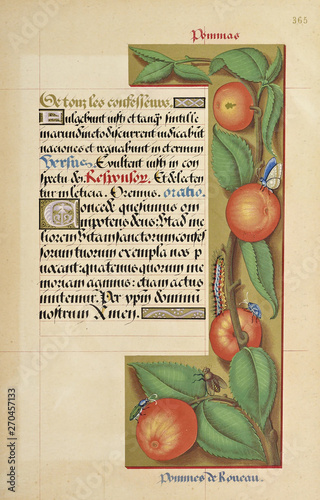 365
Pommas
De tous les confesseurs.
Fulgebunt iusti et tanq̄ scintille
in arundineto discurrent iudicabūt
naciones et regnabunt in eternum
Versus. Exultent iusti in con
spectu dei. Responsor. Et delecten
tur in leticia. Oremus. oratio.
Concede quesumus om
nipotens deus: ut ad me
liorem vitam sanctorum confes
sorum tuorum exempla nos p
uocant: quatenus quorum me
moriam agimus: etiam actus
imitemur. Per xp̄m dominū
nostrum Amen.
Pommes de Roueau.
Adobe Stock | #270457133